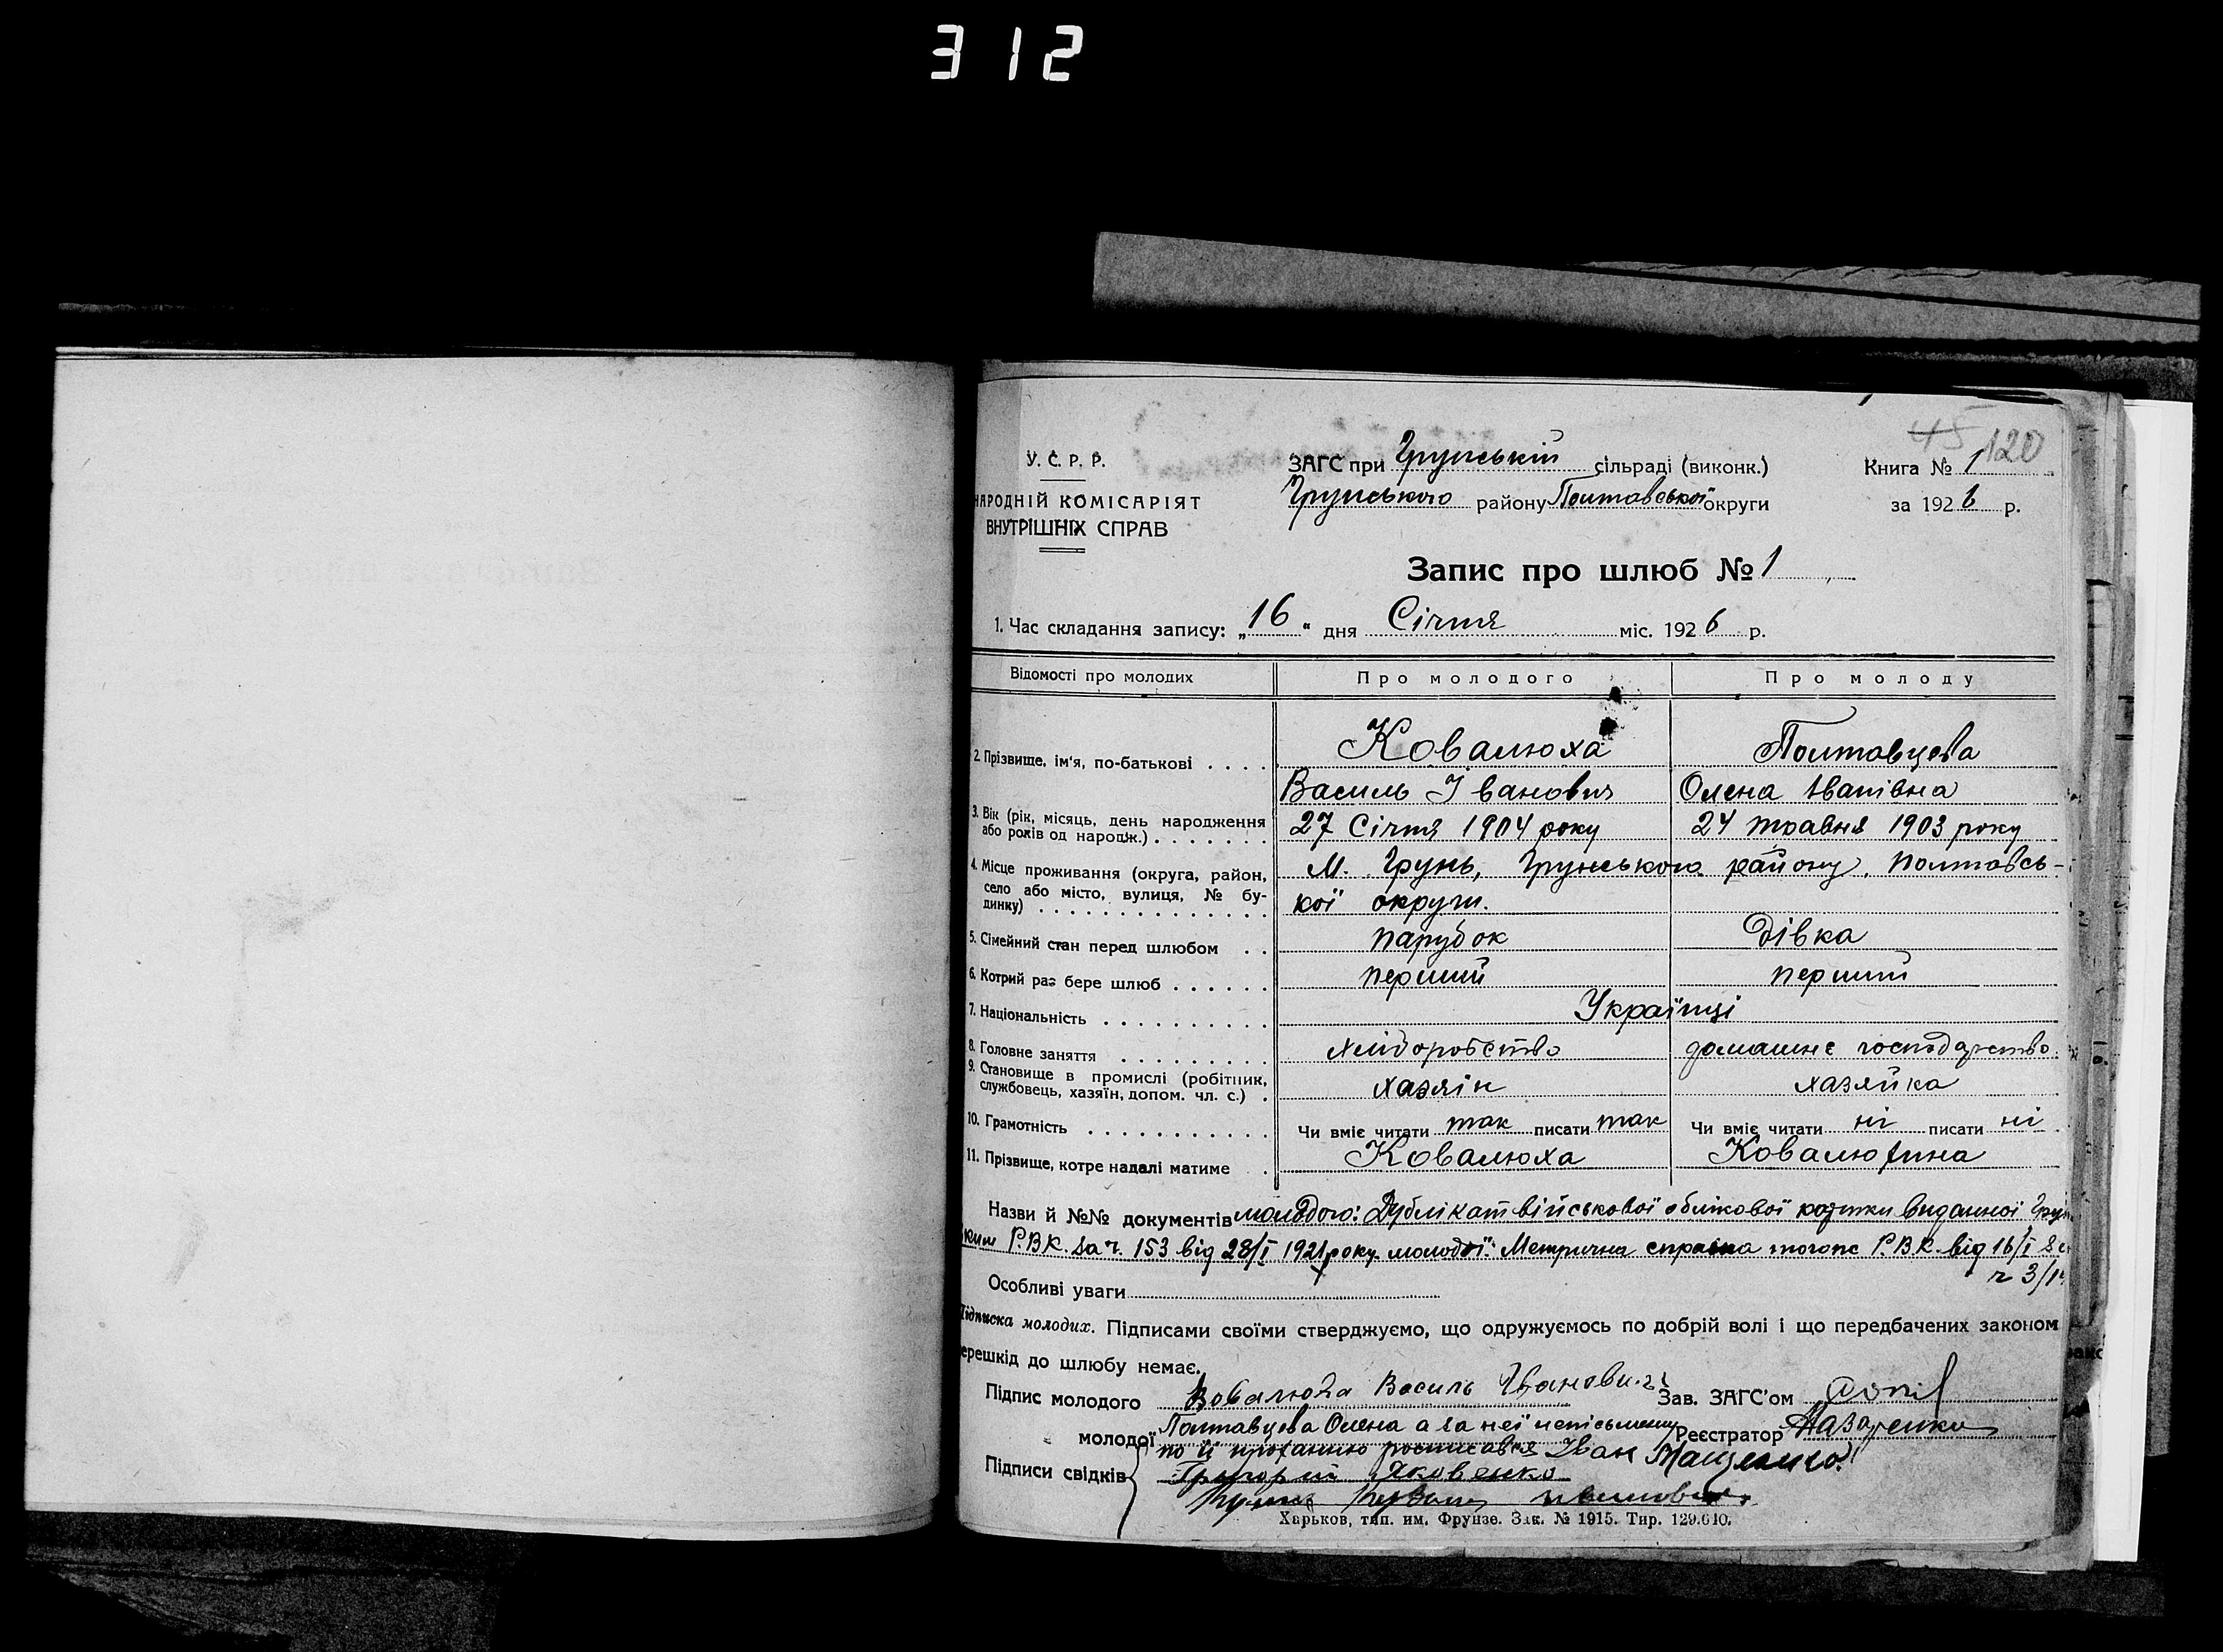 312
45 120
У. С. Р. Р.
НАРОДНІЙ КОМІСАРІЯТ
ВНУТРІШНІХ СПРАВ
ЗАГС при Грунській сільраді (виконк.)
Грунського району Полтавської округи
Книга № 1
за 1926 р.
Запис про шлюб № 1
1. Час складання запису: „16“ дня Січня міс. 1926 р.
Відомості про молодих Про молодого Про молоду
2. Прізвище, ім'я, по-батькові . . . . Ковалюха Полтавцева
Василь Іванович Олена Іванівна
3. Вік (рік, місяць, день народження
або років од народж.) . . . . . . . 27 Січня 1904 року 24 травня 1903 року
4. Місце проживання (округа, район, М. Грунь, Грунського району, Полтавсь-
село або місто, вулиця, № бу-
динку) . . . . . . . . . . . . . . кої округи.
5. Сімейний стан перед шлюбом . . парубок дівка
6. Котрий раз бере шлюб . . . . . . перший перший
7. Національність . . . . . . . . . . Українці
8. Головне заняття . . . . . . . . . хліборобство домашнє господарство
9. Становище в промислі (робітник,
службовець, хазяїн, допом. чл. с.) . хазяїн хазяйка
10. Грамотність . . . . . . . . . . . Чи вміє читати так писати так Чи вміє читати ні писати ні
11. Прізвище, котре надалі матиме . Ковалюха Ковалюхина
Назви й №№ документів молодого: Дублікат військової облікової картки виданної
Р.В.К. за ч. 153 від 28/I 1921 року молодої: Метрична справка того-же Р.В.К. від 16/I
ч 3/1
Особливі уваги
Підписка молодих. Підписами своїми стверджуємо, що одружуємось по добрій волі і що передбачених законом
ерешкід до шлюбу немає.
Підпис молодого Ковалюха Василь Іванович Зав. ЗАГС'ом
молодої Полтавцева Олена а за неї неписьменну Реєстратор Назаренко
по її проханню росписався Іван
Підписи свідків Григорій Яковенко
Харьков, тип. им. Фрунзе. Зак. № 1915. Тир. 129.610.